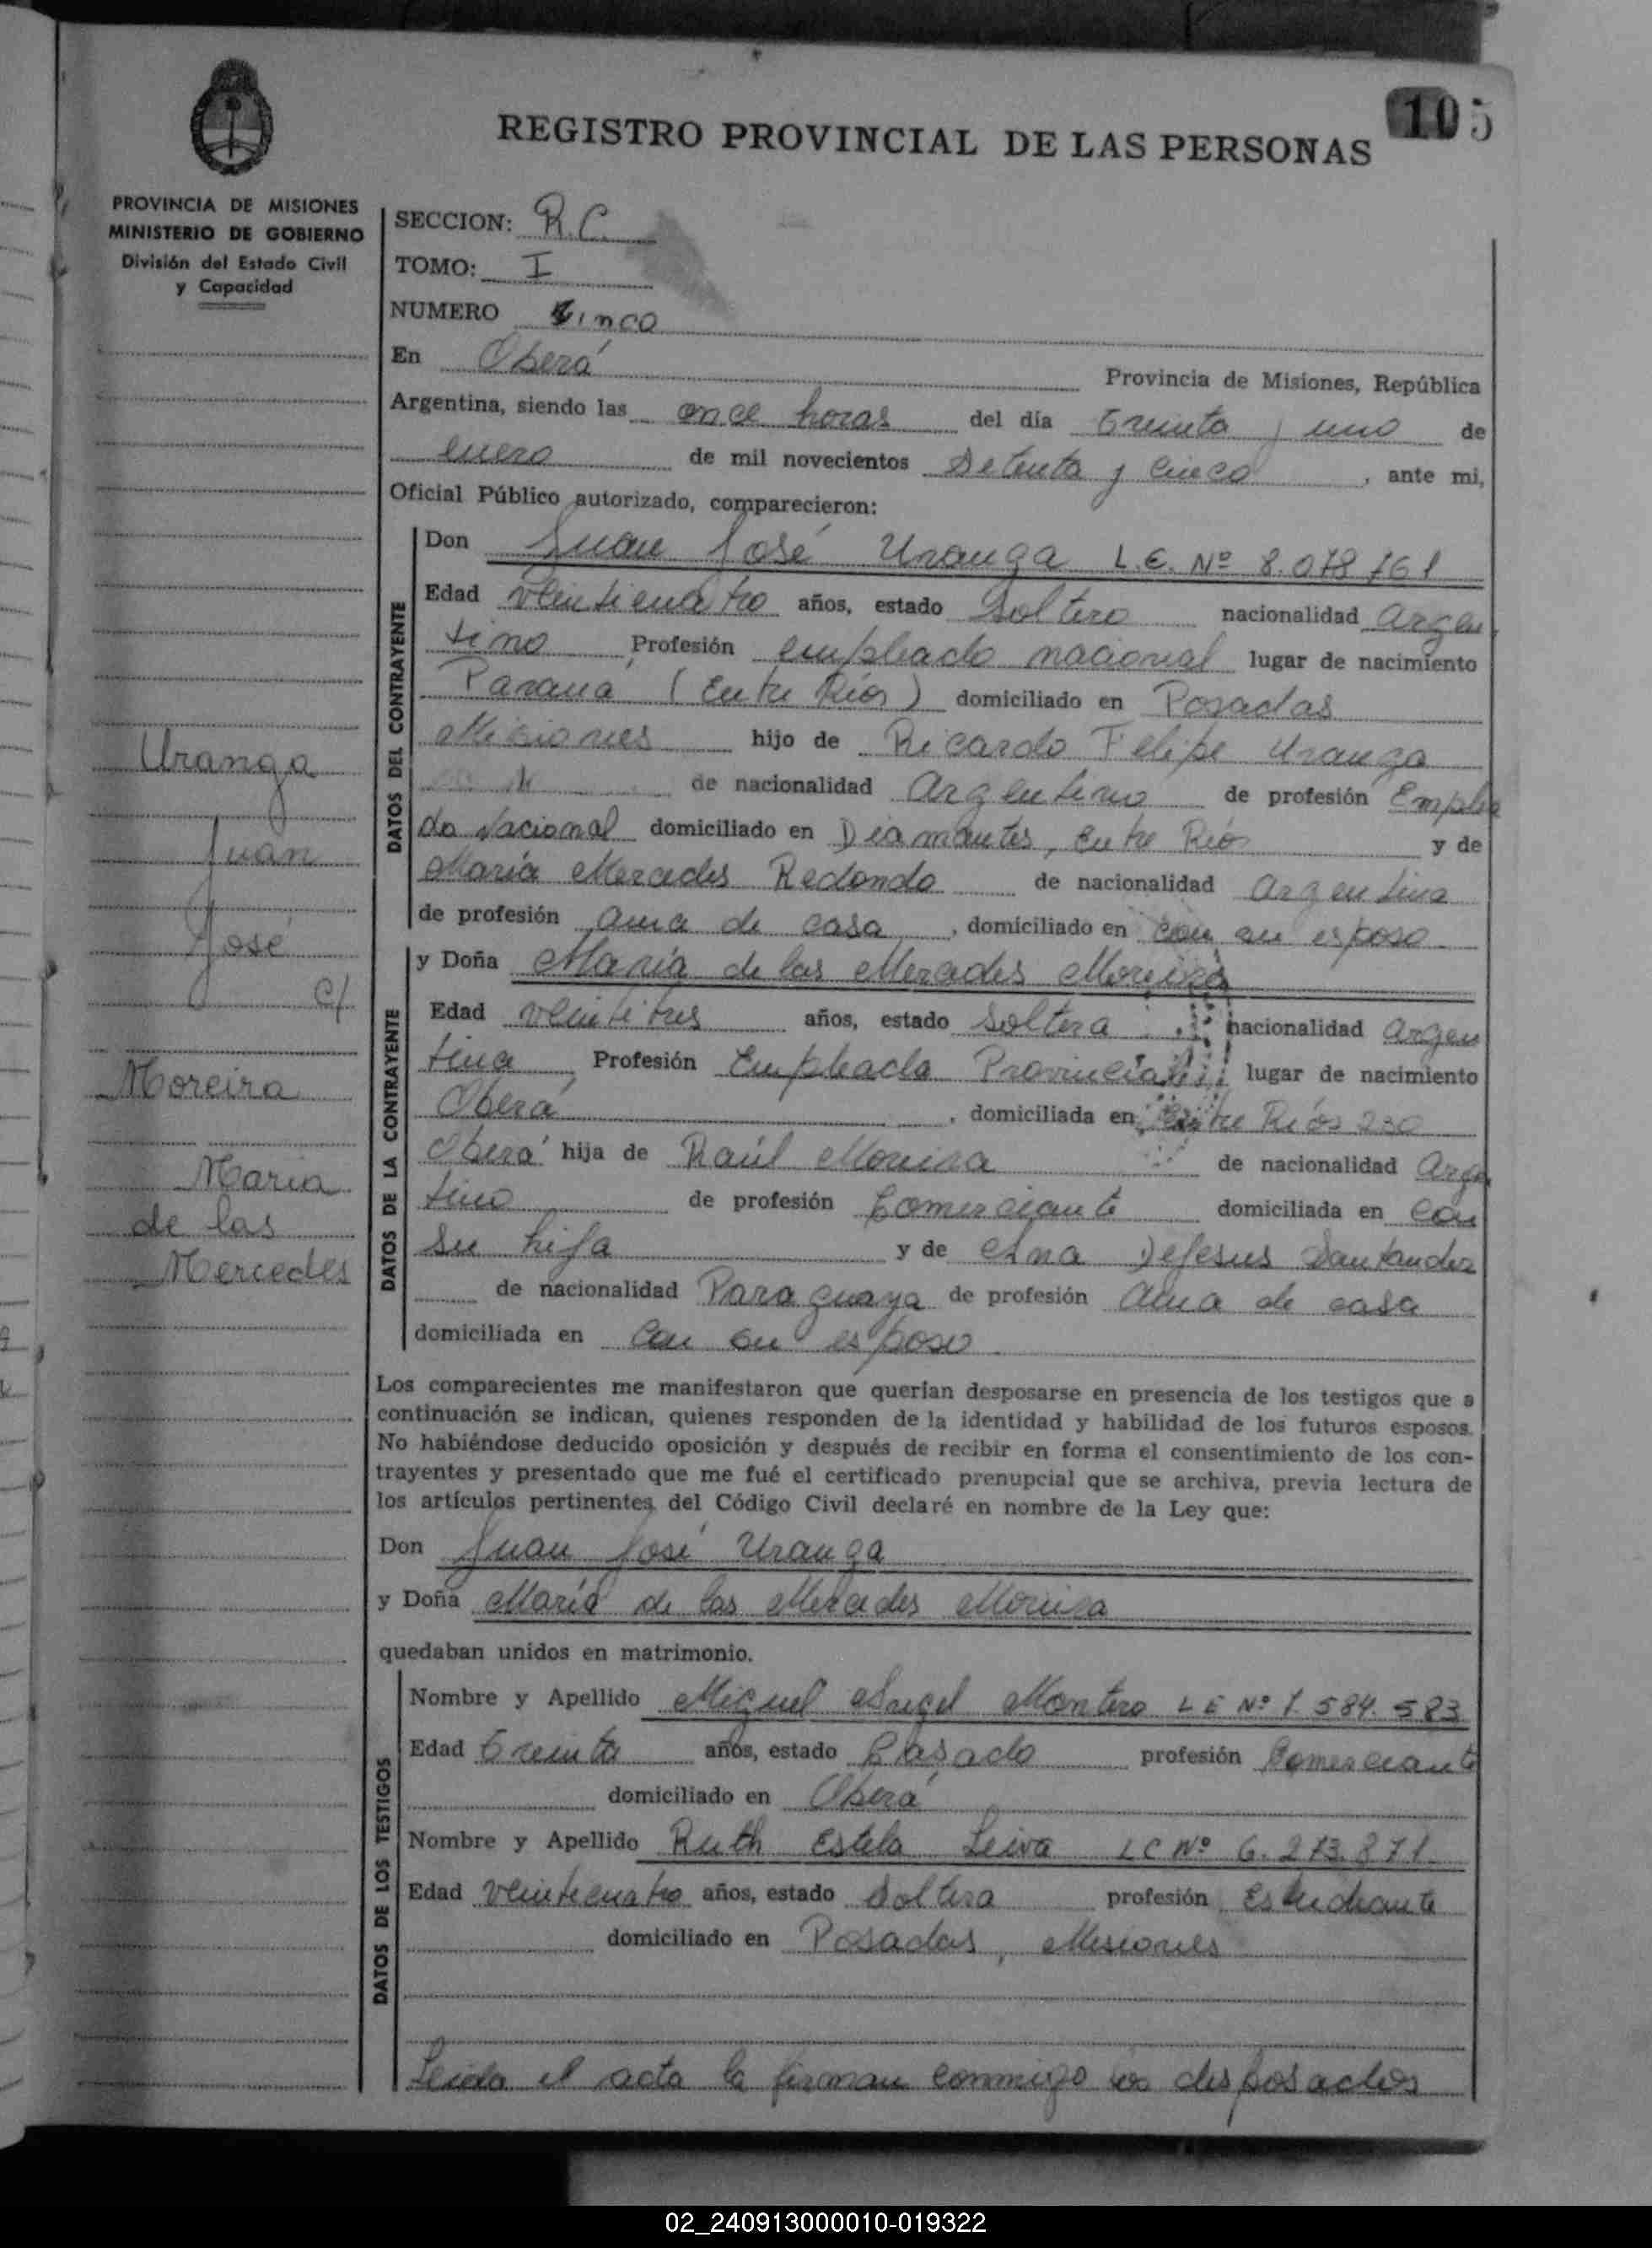 105
REGISTRO PROVINCIAL DE LAS PERSONAS
PROVINCIA DE MISIONES
MINISTERIO DE GOBIERNO
División del Estado Civil
y Capacidad
SECCION: R.C.
TOMO: I
NUMERO Cinco
En Oberá Provincia de Misiones, República
Argentina, siendo las once horas del día treinta y uno de
enero de mil novecientos setenta y cinco, ante mi,
Oficial Público autorizado, comparecieron:
DATOS DEL CONTRAYENTE
Don Juan José Uranga L.E. Nº 8.078.761
Edad veinticuatro años, estado Soltero nacionalidad argen
tino Profesión empleado nacional lugar de nacimiento
Paraná (Entre Ríos) domiciliado en Posadas
Misiones hijo de Ricardo Felipe Uranga
de nacionalidad Argentino de profesión Emplea
do Nacional domiciliado en Diamantes, Entre Ríos y de
María Mercedes Redondo de nacionalidad argentina
de profesión ama de casa, domiciliado en con su esposo
DATOS DE LA CONTRAYENTE
y Doña María de las Mercedes Moreira
Edad veintitres años, estado soltera nacionalidad argen
tina Profesión Empleada Provincial lugar de nacimiento
Oberá, domiciliada en Entre Ríos 230
Oberá hija de Raúl Moreira de nacionalidad Argen
tino de profesión Comerciante domiciliada en con
su hija y de Ana Dejesus Santander
de nacionalidad Paraguaya de profesión ama de casa
domiciliada en con su esposo
Uranga
Juan
José
c/
Moreira
Maria
de las
Mercedes
Los comparecientes me manifestaron que querían desposarse en presencia de los testigos que a
continuación se indican, quienes responden de la identidad y habilidad de los futuros esposos.
No habiéndose deducido oposición y después de recibir en forma el consentimiento de los con-
trayentes y presentado que me fué el certificado prenupcial que se archiva, previa lectura de
los artículos pertinentes del Código Civil declaré en nombre de la Ley que:
Don Juan José Uranga
y Doña María de las Mercedes Moreira
quedaban unidos en matrimonio.
DATOS DE LOS TESTIGOS
Nombre y Apellido Miguel Angel Montero LE Nº 7.584.583
Edad treinta años, estado Casado profesión Comerciante
domiciliado en Oberá
Nombre y Apellido Ruth Estela Leiva LC Nº 6.273.871
Edad veinticuatro años, estado Soltera profesión Estudiante
domiciliado en Posadas, Misiones
Leida el acta la firman conmigo los desposados
02_240913000010-019322